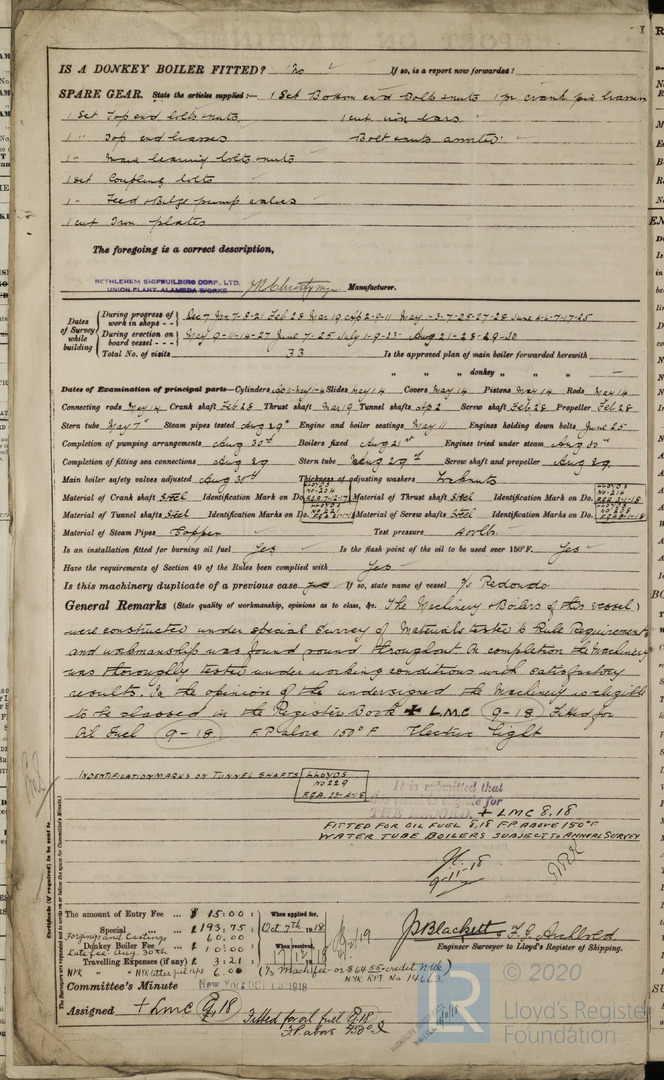 IS A DONKEY BOILER FITTED? No If so, is a report now forwarded?
SPARE GEAR. State the articles supplied:— 1 Set Bottom end Bolts & nuts 1 pr crank pin brasses
1 Set Top end bolts & nuts. 1 cwt iron bars.
1 " Top end brasses Bolts & nuts assorted
1 " Main bearing bolts & nuts
1 set Coupling bolts
1 " Feed & Bilge pump valves
1 cwt Iron plates
The foregoing is a correct description,
BETHLEHEM SHIPBUILDING CORP., LTD.
UNION PLANT, ALAMEDA WORKS Manufacturer.
Dates of Survey while building
During progress of work in shops - - Dec 7 Jan 7-8-21 Feb 28 Mar 19 Apl 2-9-11 May 1-3-7-25-27-28 June 4-6-7-17-25
During erection on board vessel - - - May 9-11-14-27 June 7-25 July 1-9-23 Aug 21-28-29-30
Total No. of visits 33 Is the approved plan of main boiler forwarded herewith
" " " donkey " " " —
Dates of Examination of principal parts—Cylinders Slides May 14 Covers May 14 Pistons May 14 Rods May 14
Connecting rods May 14 Crank shaft Feb 28 Thrust shaft Mar 19 Tunnel shafts Apl 2 Screw shaft Feb 28 Propeller Feb 28
Stern tube May 7th Steam pipes tested Aug 29th Engine and boiler seatings May 11 Engines holding down bolts June 25
Completion of pumping arrangements Aug 30th Boilers fixed Aug 21st Engines tried under steam Aug 30th
Completion of fitting sea connections Aug 29 Stern tube Aug 29th Screw shaft and propeller Aug 29
Main boiler safety valves adjusted Aug 30th Thickness of adjusting washers Locknuts
Material of Crank shaft Steel Identification Mark on Do. LLOYDS Material of Thrust shaft Steel Identification Mark on Do. LLOYDS NO 214
Material of Tunnel shafts Steel Identification Marks on Do. LLOYDS Material of Screw shafts Steel Identification Marks on Do. LLOYDS
Material of Steam Pipes Copper Test pressure 400 lbs.
Is an installation fitted for burning oil fuel Yes Is the flash point of the oil to be used over 150°F. Yes
Have the requirements of Section 49 of the Rules been complied with Yes
Is this machinery duplicate of a previous case yes If so, state name of vessel S/S Redondo
General Remarks (State quality of workmanship, opinions as to class, &c. The Machinery & Boilers of this vessel)
were constructed under special survey of Materials tested to Rule Requirements
and workmanship was found sound throughout. On completion the Machinery
was thoroughly tested under working conditions with satisfactory
results. In the opinion of the undersigned the Machinery is eligible
to be classed in the Register Book + LMC 9-18 Fitted for
Oil Fuel 9-18 F.P. above 150°F Electric Light
INDENTIFICATION MARKS ON TUNNEL SHAFTS LLOYDS
NO 229
F.G.A. 23-4-18
It is submitted that
+ LMC 8,18
FITTED FOR OIL FUEL 8,18 F.P. ABOVE 150°F.
WATER TUBE BOILERS SUBJECT TO ANNUAL SURVEY
9-11-18
Certificate (if required) to be sent to
The Surveyors are requested not to write on or below the space for Committee's Minute.
The amount of Entry Fee ... $ 15:00 : When applied for,
Special ... $ 193,75 : Oct 7th 1918
Forgings and Castings 60.00
Donkey Boiler Fee ... £ 10:00 : When received,
Late fee Aug. 30th
Travelling Expenses (if any) £ 3:21 : 17/12/1918
6.00
JPBlackett & F.G.
Engineer Surveyor to Lloyd's Register of Shipping.
NYK RPT No 14663
Committee's Minute New York OCT 1918
Assigned + LMC 8,18
Fitted for oil fuel 8,18
F.P. above 150°F
© 2020
LR
Lloyd's Register
Foundation